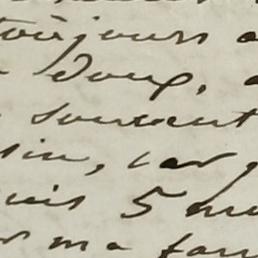 toujours a
doux,
souvent
sin, car j
uis 5 mo
ma fam